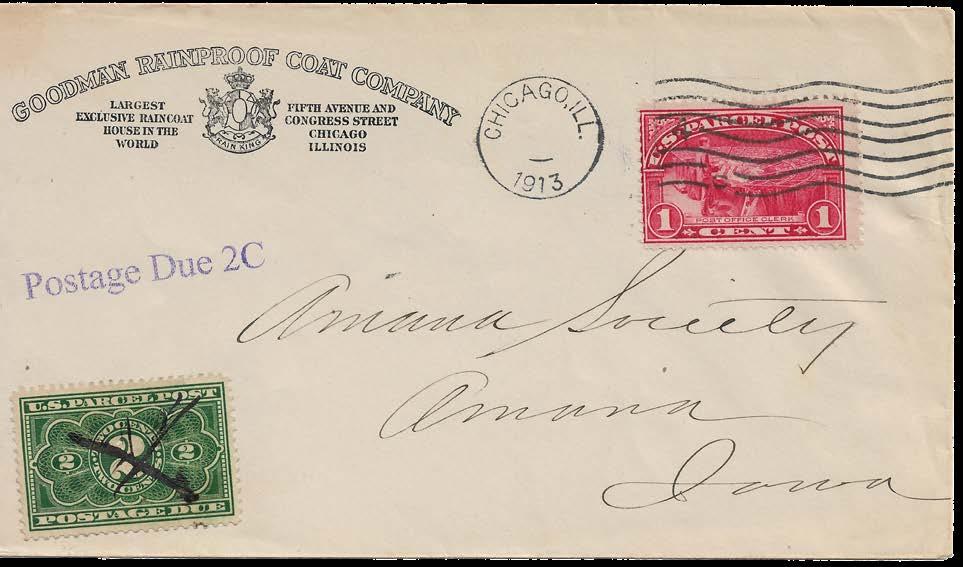 GOODMAN RAINPROOF COAT COMPANY
LARGEST
EXCLUSIVE RAINCOAT
HOUSE IN THE
WORLD
RAIN KING
FIFTH AVENUE AND
CONGRESS STREET
CHICAGO
ILLINOIS
CHICAGO, ILL.
1913
U.S. PARCEL POST
POST OFFICE CLERK
1 CENT 1
Postage Due 2C
Amana Society
Amana
Iowa
U.S. PARCEL POST
TWO CENTS
2 2 2
TWO CENTS
POSTAGE DUE